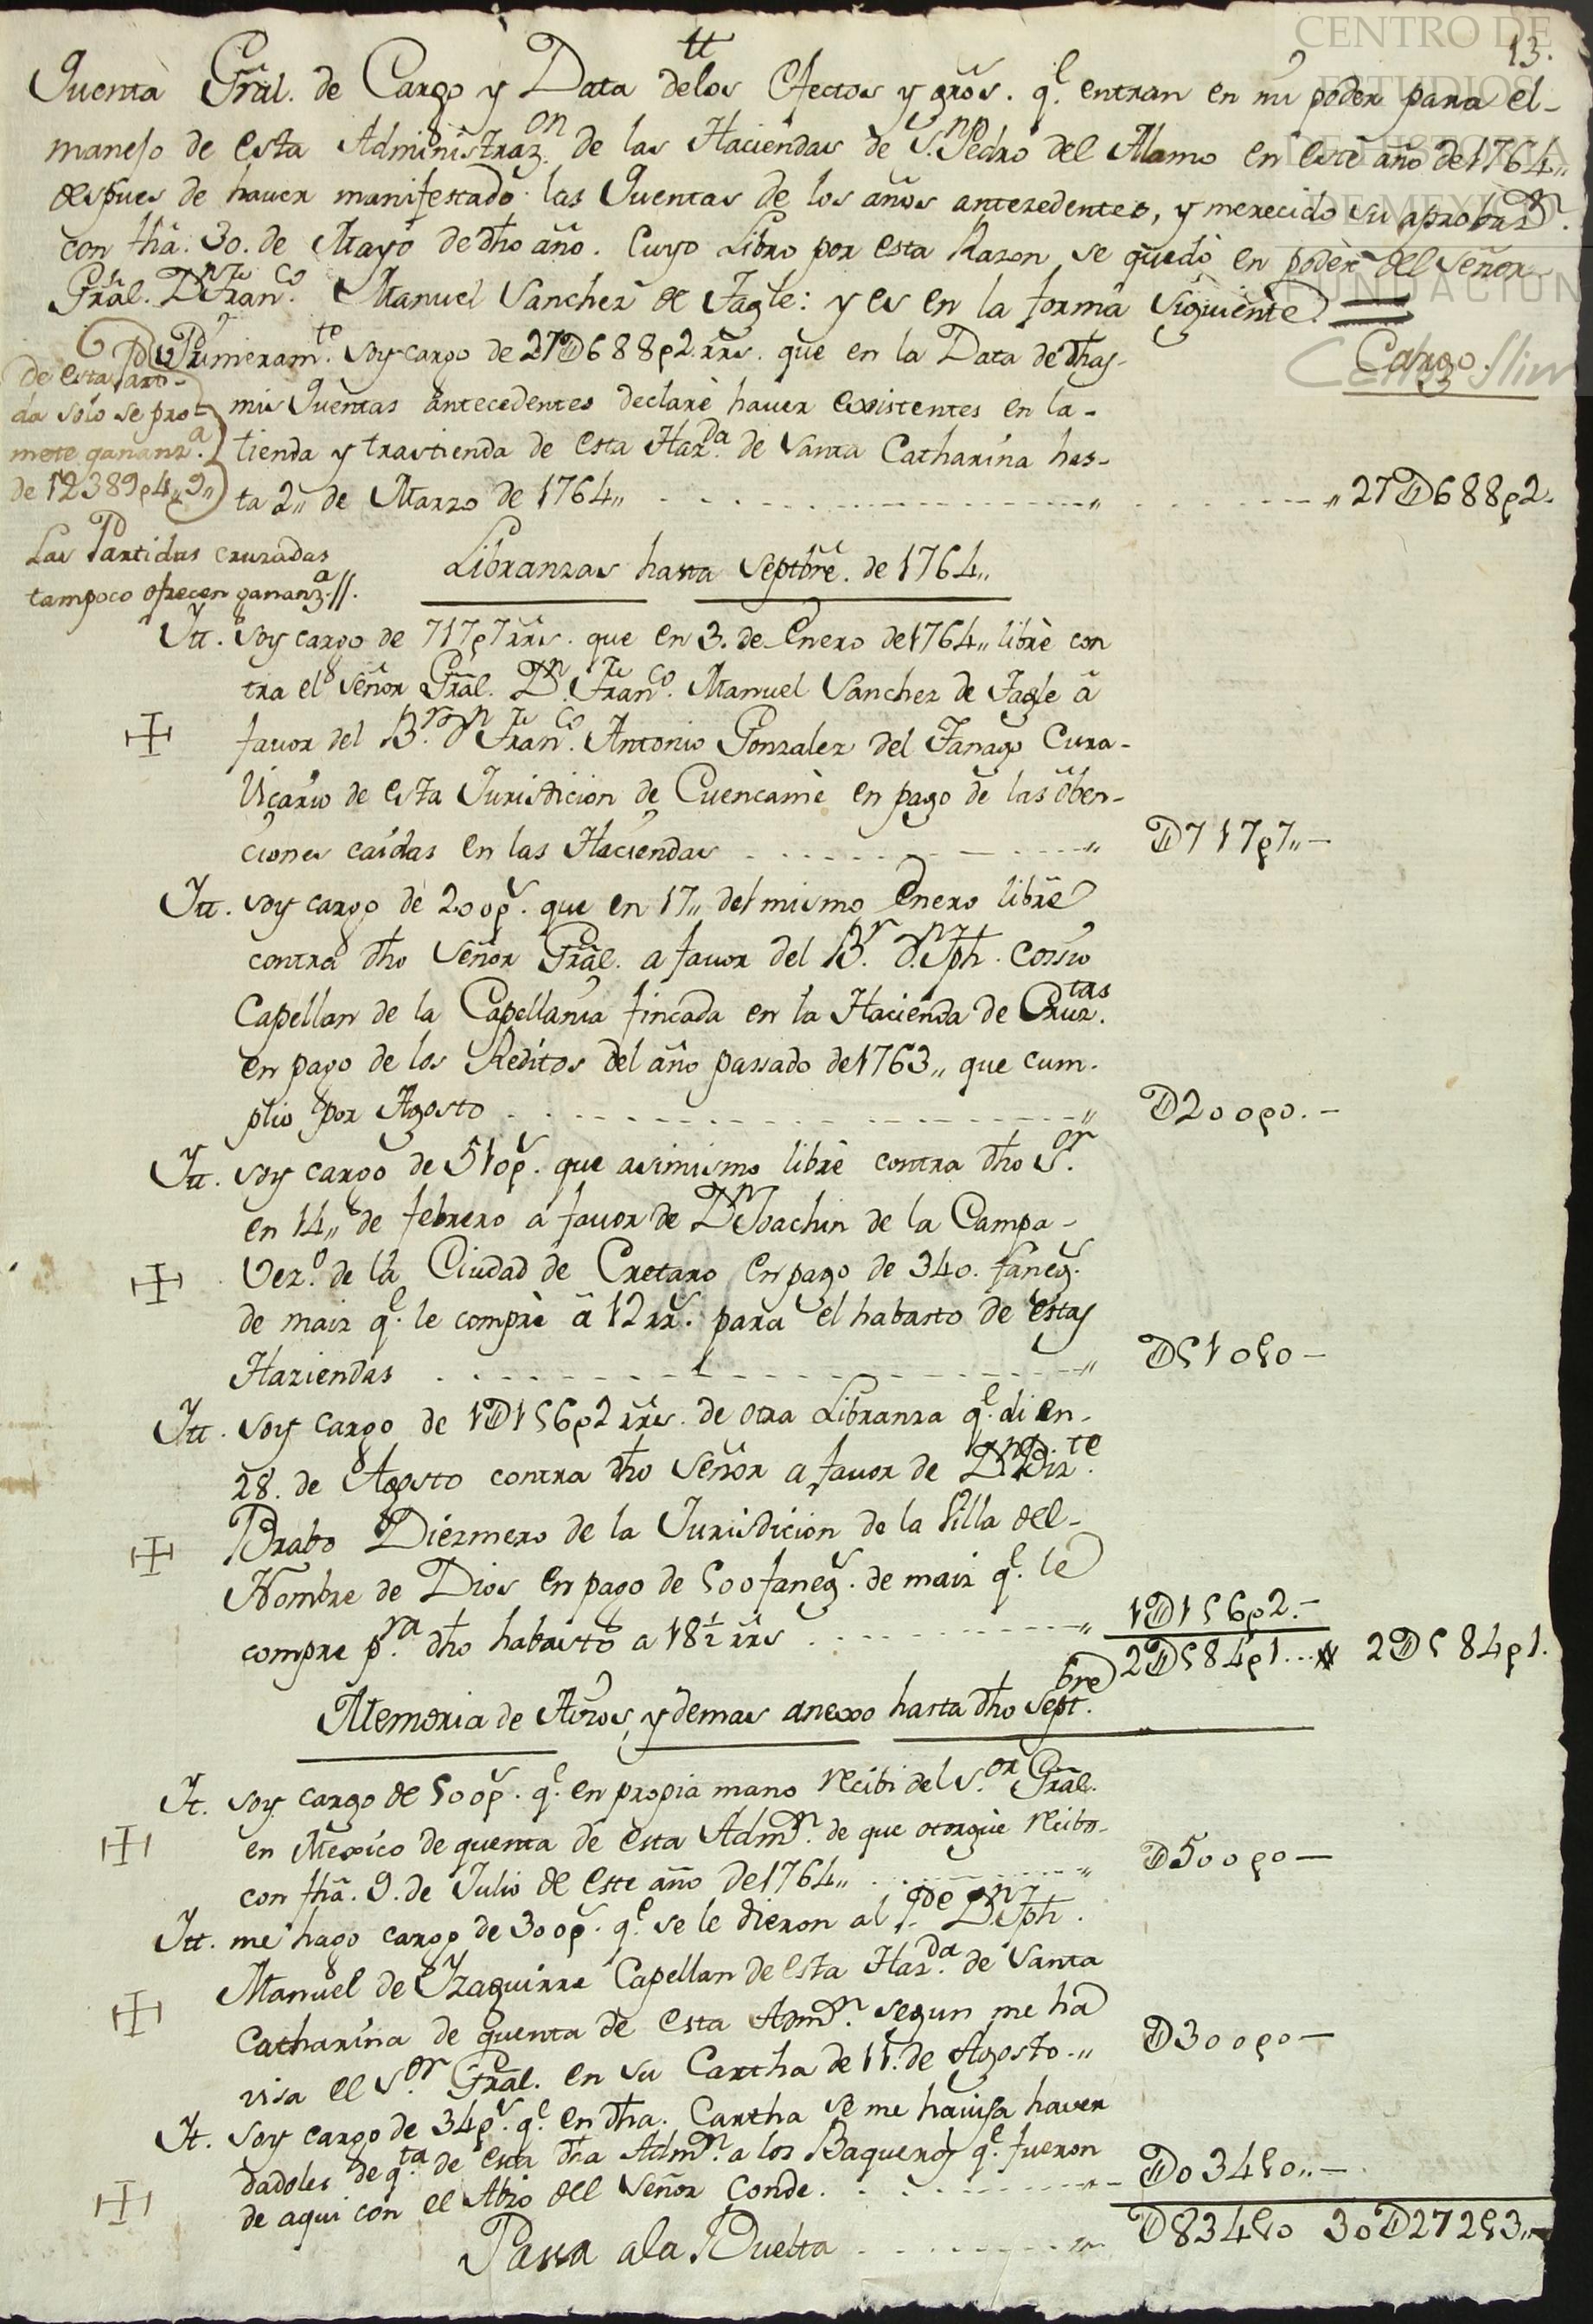 13.
Quenta Grãl. de Cargo y Data de tt los Efectos y grõs. q.e entran en mi poder para el-
manejo de esta Administraz.on de las Haciendas de S.n Pedro del Alamo en este año de 1764,,
despues de haver manifestado las Quentas de los años anteredentes, y merecido su aprobaz.n
con fhã. 30. de Mayo de dho año. Cuyo Libro por esta Razon se quedò en podèr del Señor
Grãl. D.n Fran.co Manuel Sanchez de Tagle: y es en la forma Siguiente.
Cargo.
Primeram.te Soy cargo de 27D688p2 rrs. que en la Data de dhas
mis Quentas antecedentes declarè haver existentes en la-
tienda y trastienda de esta Haz.da de Santa Catharina has-
ta 2,, de Marzo de 1764,, ,, 27D688p2.
De esta parti-
da solo se pro-
mete gananz.a
de 12389p4,,9,,
Las Partidas cruzadas
tampoco ofrecen gananz.a//.
Libranzas hasta Septbrẽ. de 1764,,
Itt. Soy cargo de 717p7 rrs. que en 3. de Enero de 1764,, librè con
tra el Señor Grãl. D.n Fran.co Manuel Sanchez de Tagle à
favor del B.r d.n Fran.co Antonio Gonzalez del Tanago Cura-
Vicario de esta Jurisdicion de Cuencamè en pago de las oben-
ciones caidas en las Haciendas ,, D717p7,,-
Itt. soy cargo de 200p.s que en 17,, del mismo Enero librè
contra dho Señor Grãl. a favor del B.r d.n Jph. Cossio
Capellan de la Capellania fincada en la Hacienda de Cruz.tas
en pago de los Reditos del año passado de 1763,, que cum-
plio por Agosto ,, D200p0.-
Itt. soy cargo de 510p.s que asimismo librè contra dho S.or
en 14,, de febrero a favor de D.n Joachin de la Campa-
Vez.o de la Ciudad de Cretaro en pago de 340. faneg.s
de maiz q.e le comprè à 12 rr.s para el habasto de estas
Haziendas ,, D510p0-
Itt. Soy cargo de 1D156p2 rrs. de otra Libranza q.e di en-
28. de Agosto contra dho Señor a favor de D.n
Brabo Diezmero de la Jurisdicion de la Villa del-
Nombre de Dios en pago de 500 faneg.s de maiz q.e le
compre p.ra dho habasto a 18 1/2 rrs ,, 1D156p2.-
2D584p1... 2D584p1.
Memoria de Avios, y demas anexo hasta dho Sept.bre
It. soy cargo de 500p.s q.e en propia mano recibi del S.or Grãl.
en Mexico de quenta de esta Adm.n de que otorguè recibo-
con fhã. 9. de Julio de este año de 1764,, ,, D500p0-
Itt. me hago cargo de 300p.s q.e se le dieron al P.de D.n Jph.
Manuel de Yzaguirre Capellan de esta Haz.da de Santa
Catharina de quenta de esta Adm.n segun me ha
visa el S.or Grãl. en su Cartha de 11. de Agosto.,, D300p0-
It. Soy cargo de 34p.s q.e en dha. Cartha se me havisa haver
dadoles de q.ta de esta dha Adm.n a los Baqueros q.e fueron
de aqui con el Abio del Señor Conde. D034p0,,-
Passa a la Buelta D834p0 30D272p3,,-
CENTRO DE
ESTUDIOS
DE HISTORIA
DE MEXICO
FUNDACION
Carlos Slim